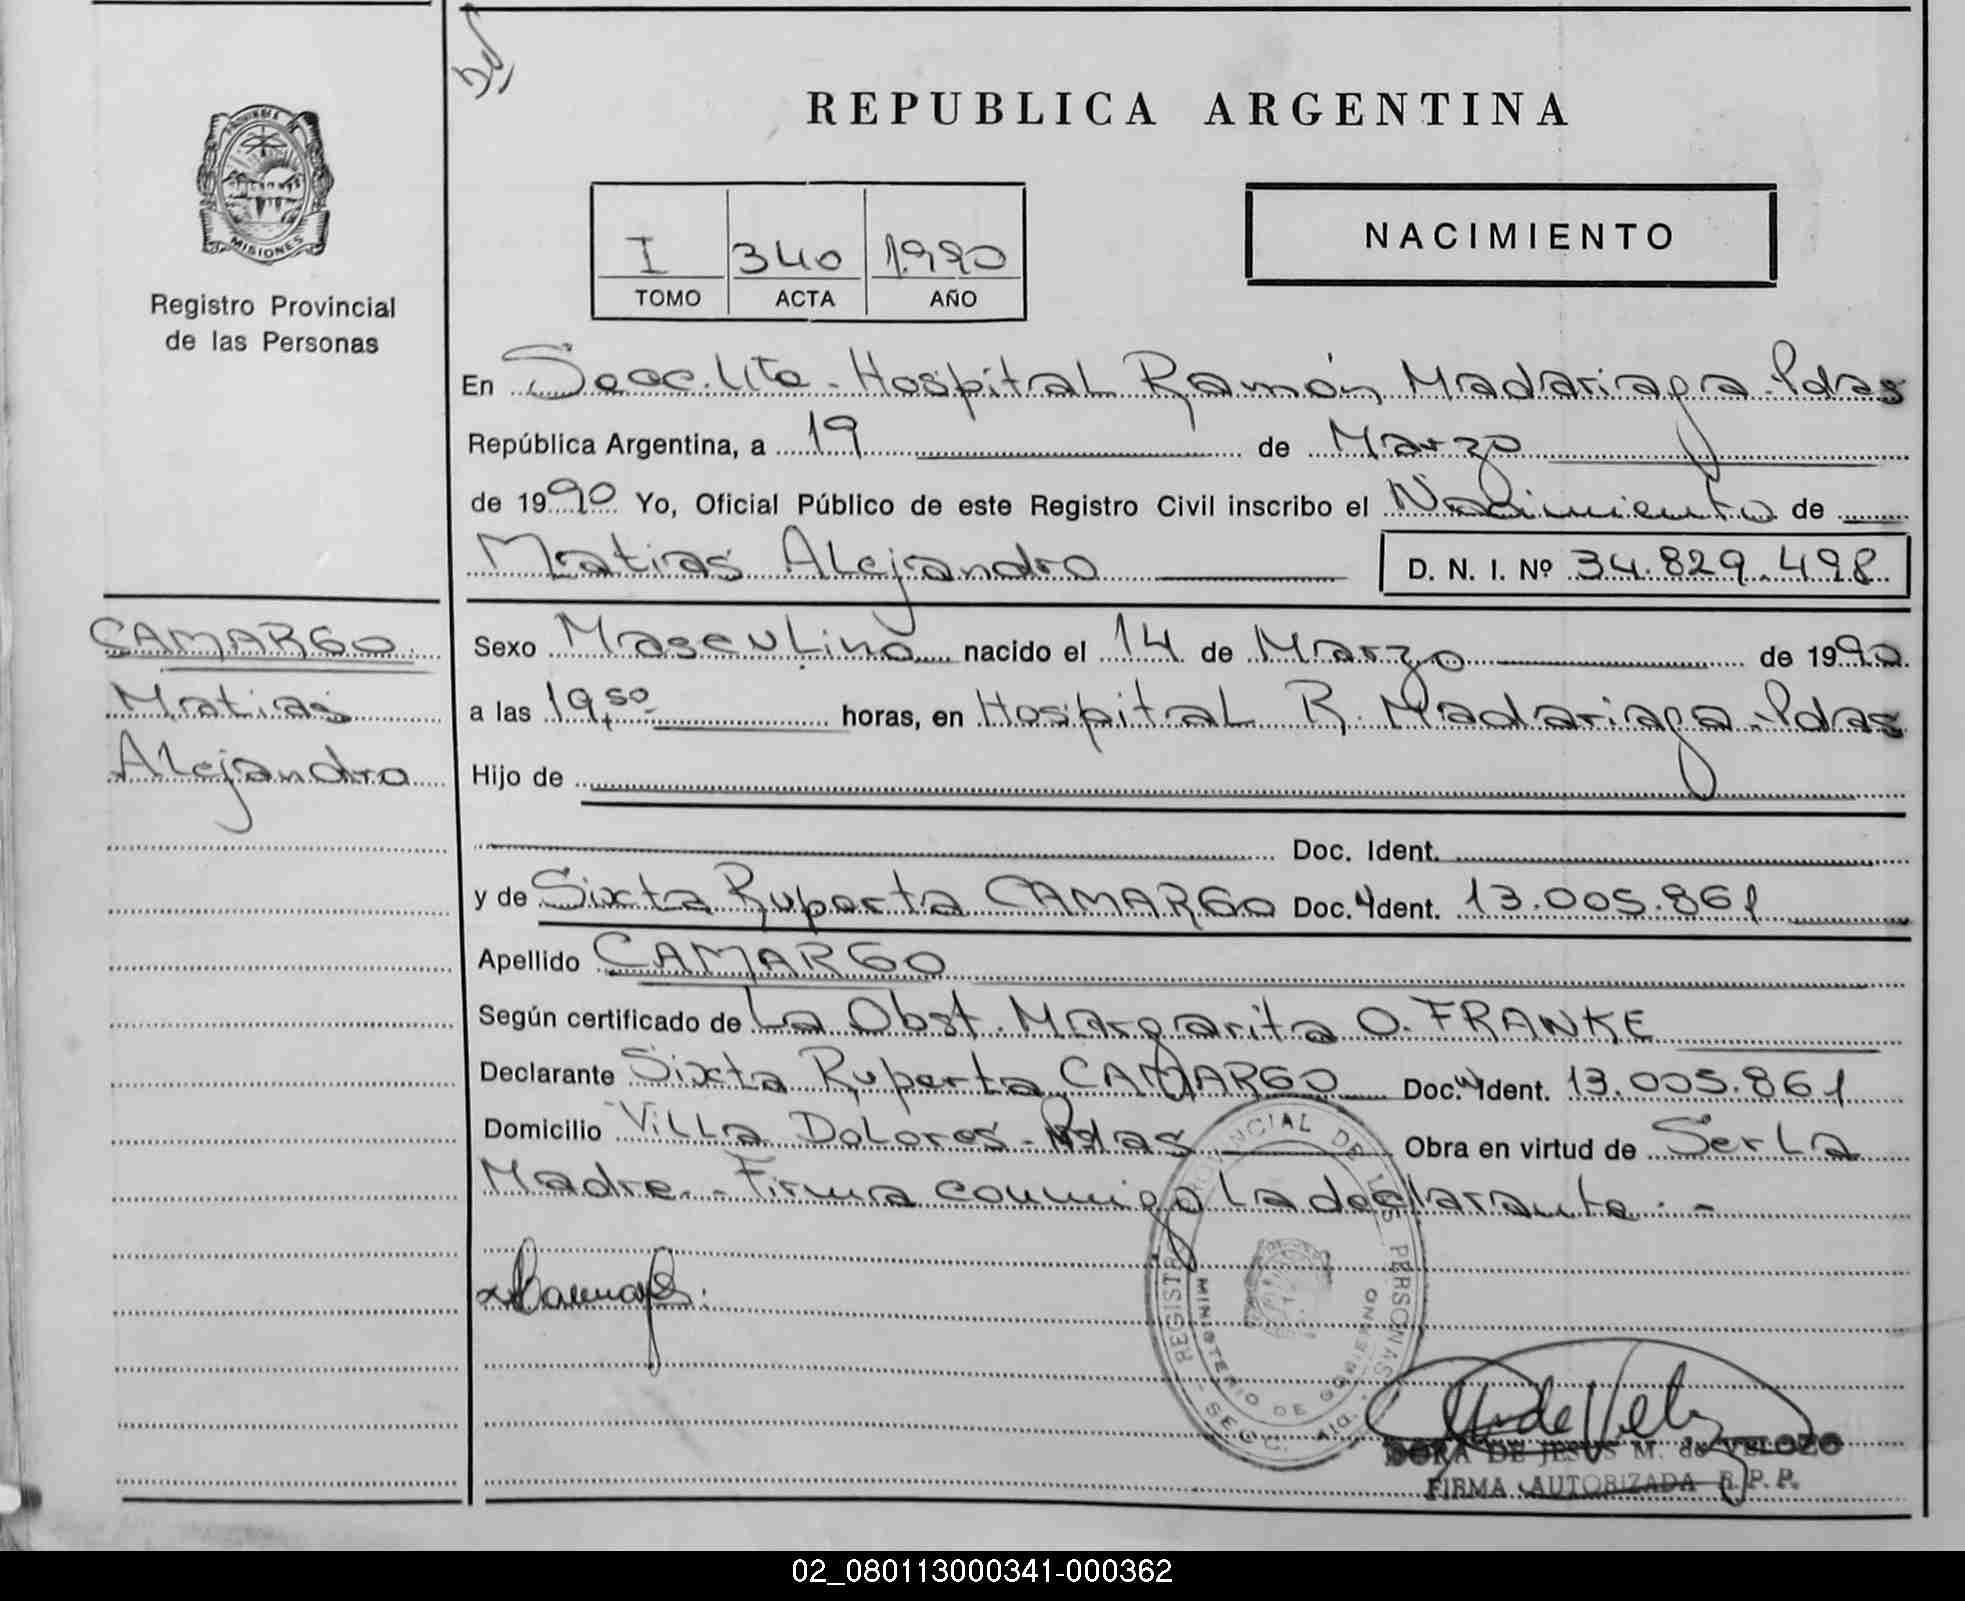 REPUBLICA ARGENTINA
PROVINCIA DE
MISIONES
Registro Provincial
de las Personas
NACIMIENTO
I 340 1.990
TOMO ACTA AÑO
En Secc. Hospital Ramón Madariaga - Pdas
República Argentina, a 19 de Marzo
de 1990 Yo, Oficial Público de este Registro Civil inscribo el Nacimiento de
Matias Alejandro D. N. I. Nº 34.829.498
CAMARGO
Matias
Alejandro
Sexo Masculino nacido el 14 de Marzo de 1990
a las 19,50 horas, en Hospital R. Madariaga - Pdas
Hijo de
Doc. Ident.
y de Sixta Ruperta CAMARGO Doc. Ident. 13.005.861
Apellido CAMARGO
Según certificado de La Obst. Margarita O. FRANKE
Declarante Sixta Ruperta CAMARGO Doc. Ident. 13.005.861
Domicilio Villa Dolores - Pdas Obra en virtud de Ser La
Madre.- Firma conmigo la declarante.-
REGISTRO PROVINCIAL DE LAS PERSONAS
MINISTERIO DE GOBIERNO
DORA DE JESUS M. de VELOZO
FIRMA AUTORIZADA R.P.P.
02_080113000341-000362